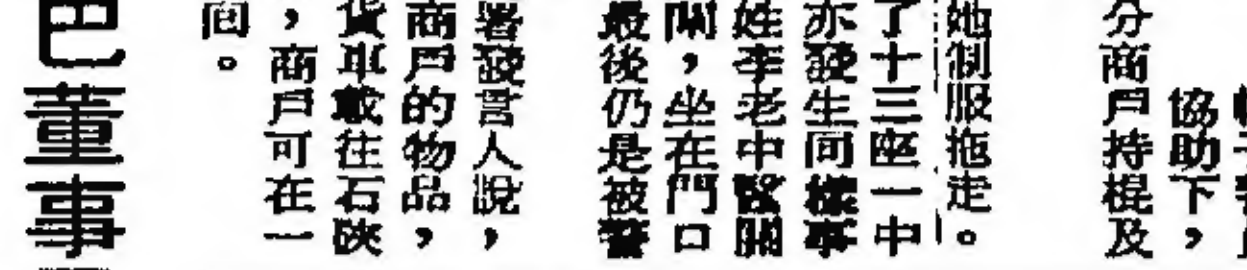 協助下，
分商戶持棍及
她制服拖走。
了十三座一中
亦發生同樣事
姓李老中醫關
鬧，坐在門口
最後仍是被警
署發言人說，
商戶的物品，
貨車載往石硤
，商戶可在一
間。
巴董事